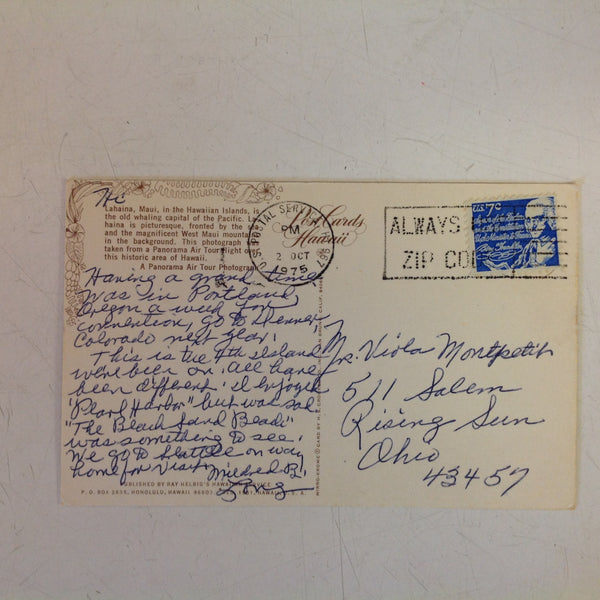 Hi
Lahaina, Maui, in the Hawaiian Islands, is
the old whaling capital of the Pacific. La-
haina is picturesque, fronted by the sea
and the magnificent West Maui mountains
in the background. This photograph
taken from a Panorama Air Tour flight over
this historic area of Hawaii.
A Panorama Air Tour Photograph
Post Cards
Hawaii
U.S. POSTAL SERVICE
PM
2 OCT
1975
ALWAYS
ZIP CODE
U.S. 7c
Having a grand time
was in Portland,
Oregon a week for
convention, go to Denver
Colorado next year.
This is the 4th Island
we've been on. All have
been different. I enjoyed
"Pearl Harbor" but was sad
"The Black Sand Beach"
was something to see.
We go to Seattle on way
home for visit.
Mildred B.
Long
Mr. Viola Montpetit
511 Salem
Rising Sun
Ohio
43457
PUBLISHED BY RAY HELBIG'S HAWAIIAN SERVICE
P. O. BOX 2835, HONOLULU, HAWAII 96803